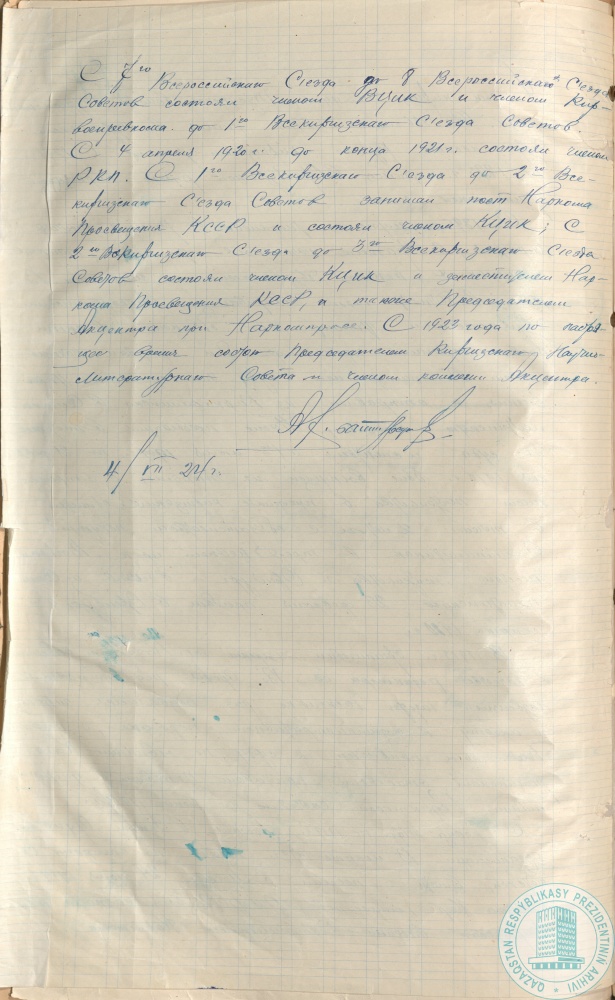 С 7го Всероссийскаго Съезда до 8 Всероссийскаго Съезда
Советов состоял членом ВЦИК и членом Кир-
военревкома до 1го Всекиргизскаго Съезда Советов.
С 4 апреля 1920 г. до конца 1921 г. состоял членом
РКП. С 1го Всекиргизскаго Съезда до 2го Все-
киргизскаго Съезда Советов занимал пост Наркома
Просвещения КССР и состоял членом КЦИК; С
2го Всекиргизскаго Съезда до 3го Всекиргизскаго Съезда
Советов состоял членом КЦИК и заместителем Нар-
кома Просвещения КССР, а также Председателем
Акцентра при Наркомпросе. С 1923 года по настоя-
щее время состою Председателем Киргизскаго Научно-
Литературнаго Совета и членом коллегии Акцентра.
А. Байтурсунов
4/VII 24 г.
QAZAQSTAN RESPÝBLIKASY PREZIDENTINIŃ ARHIVI